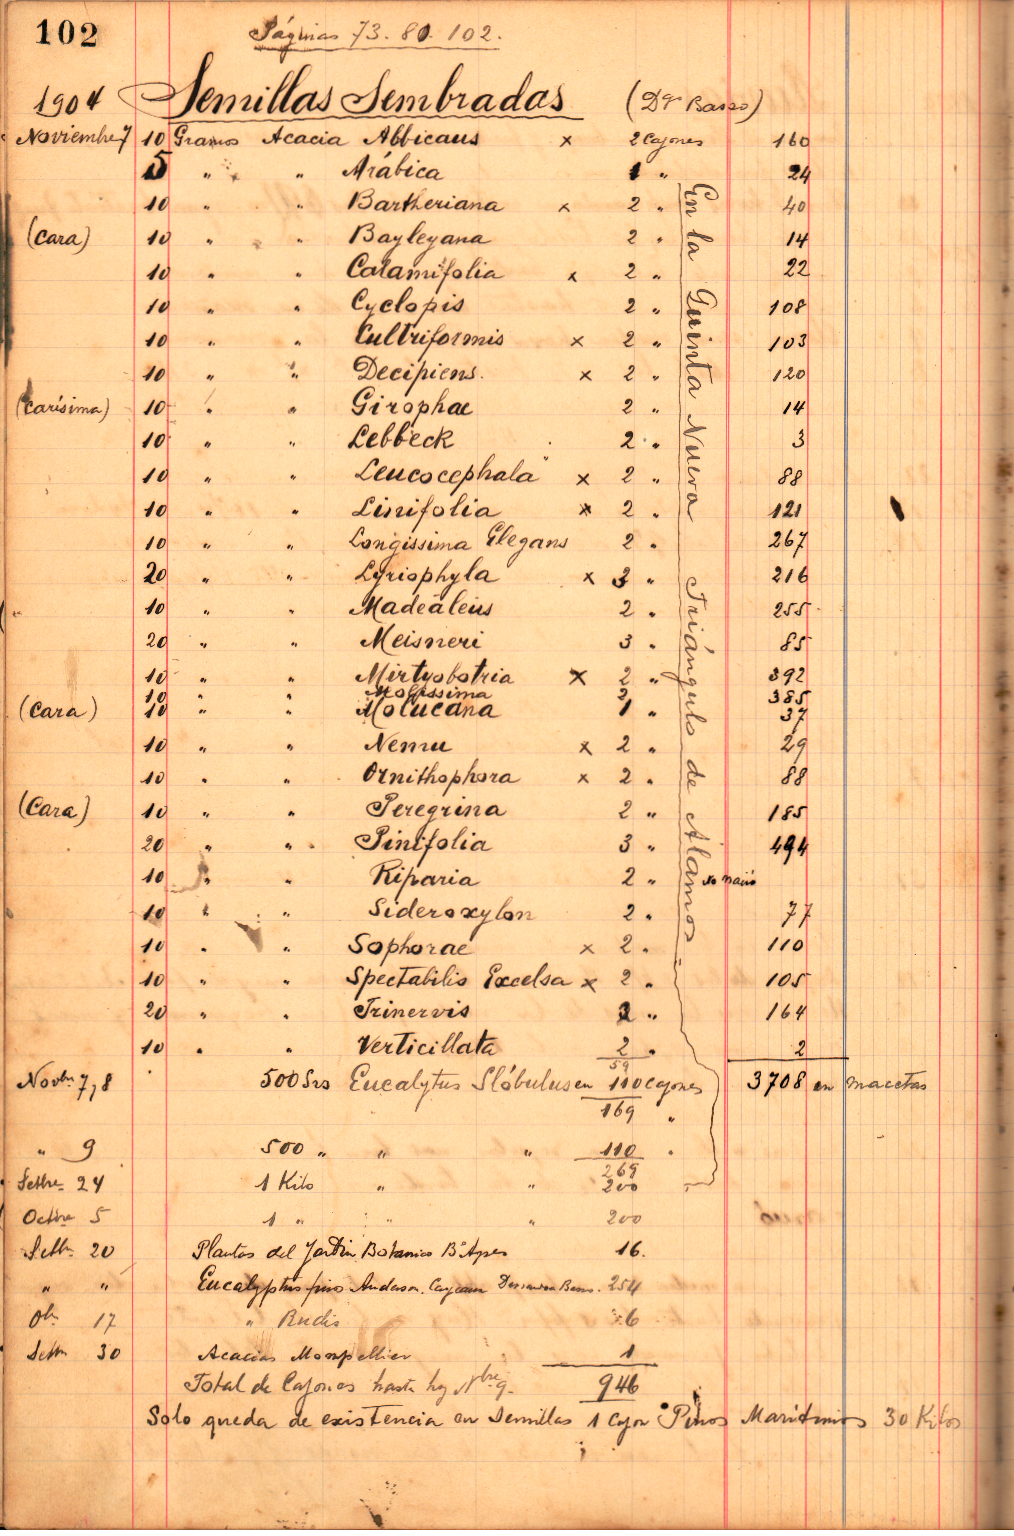 102
Páginas 73. 80. 102.
1904 Semillas Sembradas (Dr Basso)
Noviembre 7 10 Gramos Acacia Albicans x 2 Cajones 160
5 " " Arábica 1 " 24
10 " " Bartheriana x 2 " 40
(Cara) 10 " " Bayleyana 2 " 14
10 " " Calamifolia x 2 " 22
10 " " Cyclopis 2 " 108
10 " " Cultriformis x 2 " 103
10 " " Decipiens. x 2 " 120
(Carísima) 10 " " Girophae 2 " 14
10 " " Lebbeck 2 " 3
10 " " Leucocephala x 2 " 88
10 " " Linifolia x 2 " 121
10 " " Longissima Elegans 2 " 267
20 " " Lyriophyla x 3 " 216
10 " " Madeáleus 2 " 255
20 " " Meisneri 3 " 85
10 " " Mirtyobotria x 2 " 392
10 " " Molissima 2 385
(Cara) 10 " " Molucana 1 " 37
10 " " Nemu x 2 " 29
10 " " Ornithophora x 2 " 88
(Cara) 10 " " Peregrina 2 " 185
20 " " Pinifolia 3 " 494
10 " " Riparia 2 " No nació
10 " " Sideroxylon 2 " 77
10 " " Sophorae x 2 " 110
10 " " Spectabilis Excelsa x 2 " 105
20 " " Trinervis 3 " 164
10 " " Verticillata 2 " 2
En la Quinta Nueva Triángulo de Alamos
59
Novbre 7,8 500 Grs Eucalytus Glóbulus en 110 cajones 3708 en macetas
169 "
" 9 500 " " " 110 "
269
Setbre 24 1 Kilo " " 200
Octbre 5 1 " " " 200
Setbr 20 Plantas del Jardin Botanico Bs Ayres 16.
" " Eucalyptus 254
Obr 17 " Rudis 6
Setbr 30 Acacias Monpellier 1
Total de Cajones hasta hoy Nbre 9. 946
Solo queda de existencia en Semillas 1 Cajon Pinos Maritimos 30 Kilos